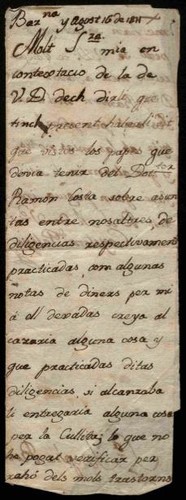 Barna y Agost 16 de 1811
Molt Sra
mia en
contextacio de la de
V.D. dech dirli que
tinch present haberli dit
que vistos los papers que
devia tenir del Doctor
Ramon Costa sobre asun
tas entre nosaltres de
diligencias respectivament
practicadas, com algunas
notas de diners per mi
á ell devadas creya al
cararia alguna cosa y
que practicadas ditas
diligencias, si alcanzaba
li entregaria alguna cosa
per la Culleta; lo que no
he pogut verificar per
rahó dels mols trastorns